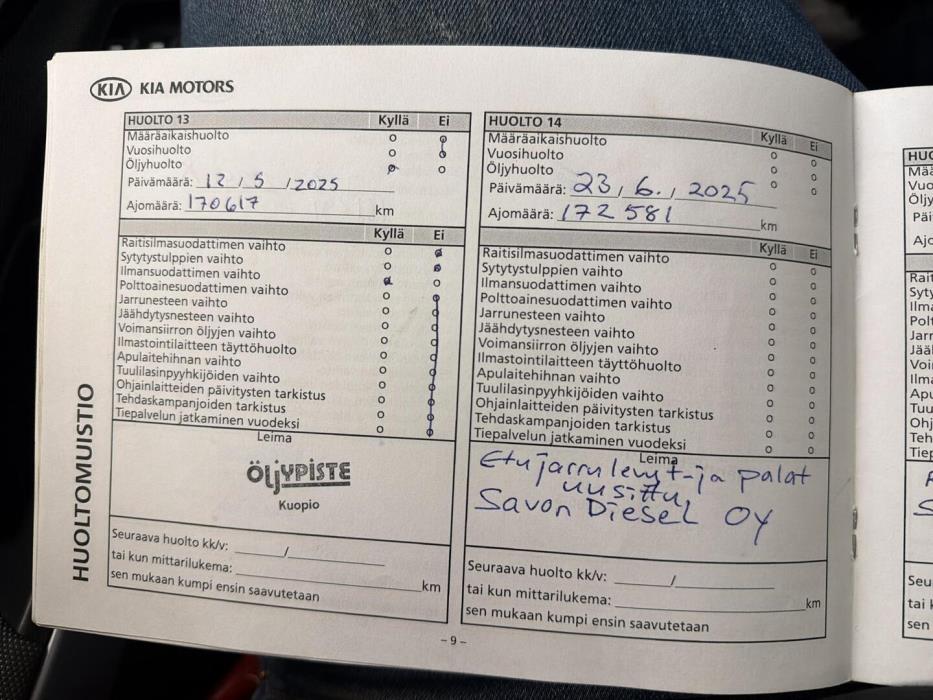 KIA KIA MOTORS
HUOLTO 13 Kyllä Ei
Määräaikaishuolto
Vuosihuolto
Öljyhuolto
Päivämäärä: 12 / 5 / 2025
Ajomäärä: 170617 km
Kyllä Ei
Raitisilmasuodattimen vaihto
Sytytystulppien vaihto
Ilmansuodattimen vaihto
Polttoainesuodattimen vaihto
Jarrunesteen vaihto
Jäähdytysnesteen vaihto
Voimansiirron öljyjen vaihto
Ilmastointilaitteen täyttöhuolto
Apulaitehihnan vaihto
Tuulilasinpyyhkijöiden vaihto
Ohjainlaitteiden päivitysten tarkistus
Tehdaskampanjoiden tarkistus
Tiepalvelun jatkaminen vuodeksi
Leima
ÖljYPISTE
Kuopio
Seuraava huolto kk/v: ______/__________
tai kun mittarilukema: __________ km
sen mukaan kumpi ensin saavutetaan
HUOLTO 14 Kyllä Ei
Määräaikaishuolto
Vuosihuolto
Öljyhuolto
Päivämäärä: 23 / 6. / 2025
Ajomäärä: 172 581 km
Kyllä Ei
Raitisilmasuodattimen vaihto
Sytytystulppien vaihto
Ilmansuodattimen vaihto
Polttoainesuodattimen vaihto
Jarrunesteen vaihto
Jäähdytysnesteen vaihto
Voimansiirron öljyjen vaihto
Ilmastointilaitteen täyttöhuolto
Apulaitehihnan vaihto
Tuulilasinpyyhkijöiden vaihto
Ohjainlaitteiden päivitysten tarkistus
Tehdaskampanjoiden tarkistus
Tiepalvelun jatkaminen vuodeksi
Leima
Etujarrulevyt-ja palat
uusittu
Savon Diesel OY
Seuraava huolto kk/v: ______/__________
tai kun mittarilukema: __________ km
sen mukaan kumpi ensin saavutetaan
HUOLTOMUISTIO
- 9 -